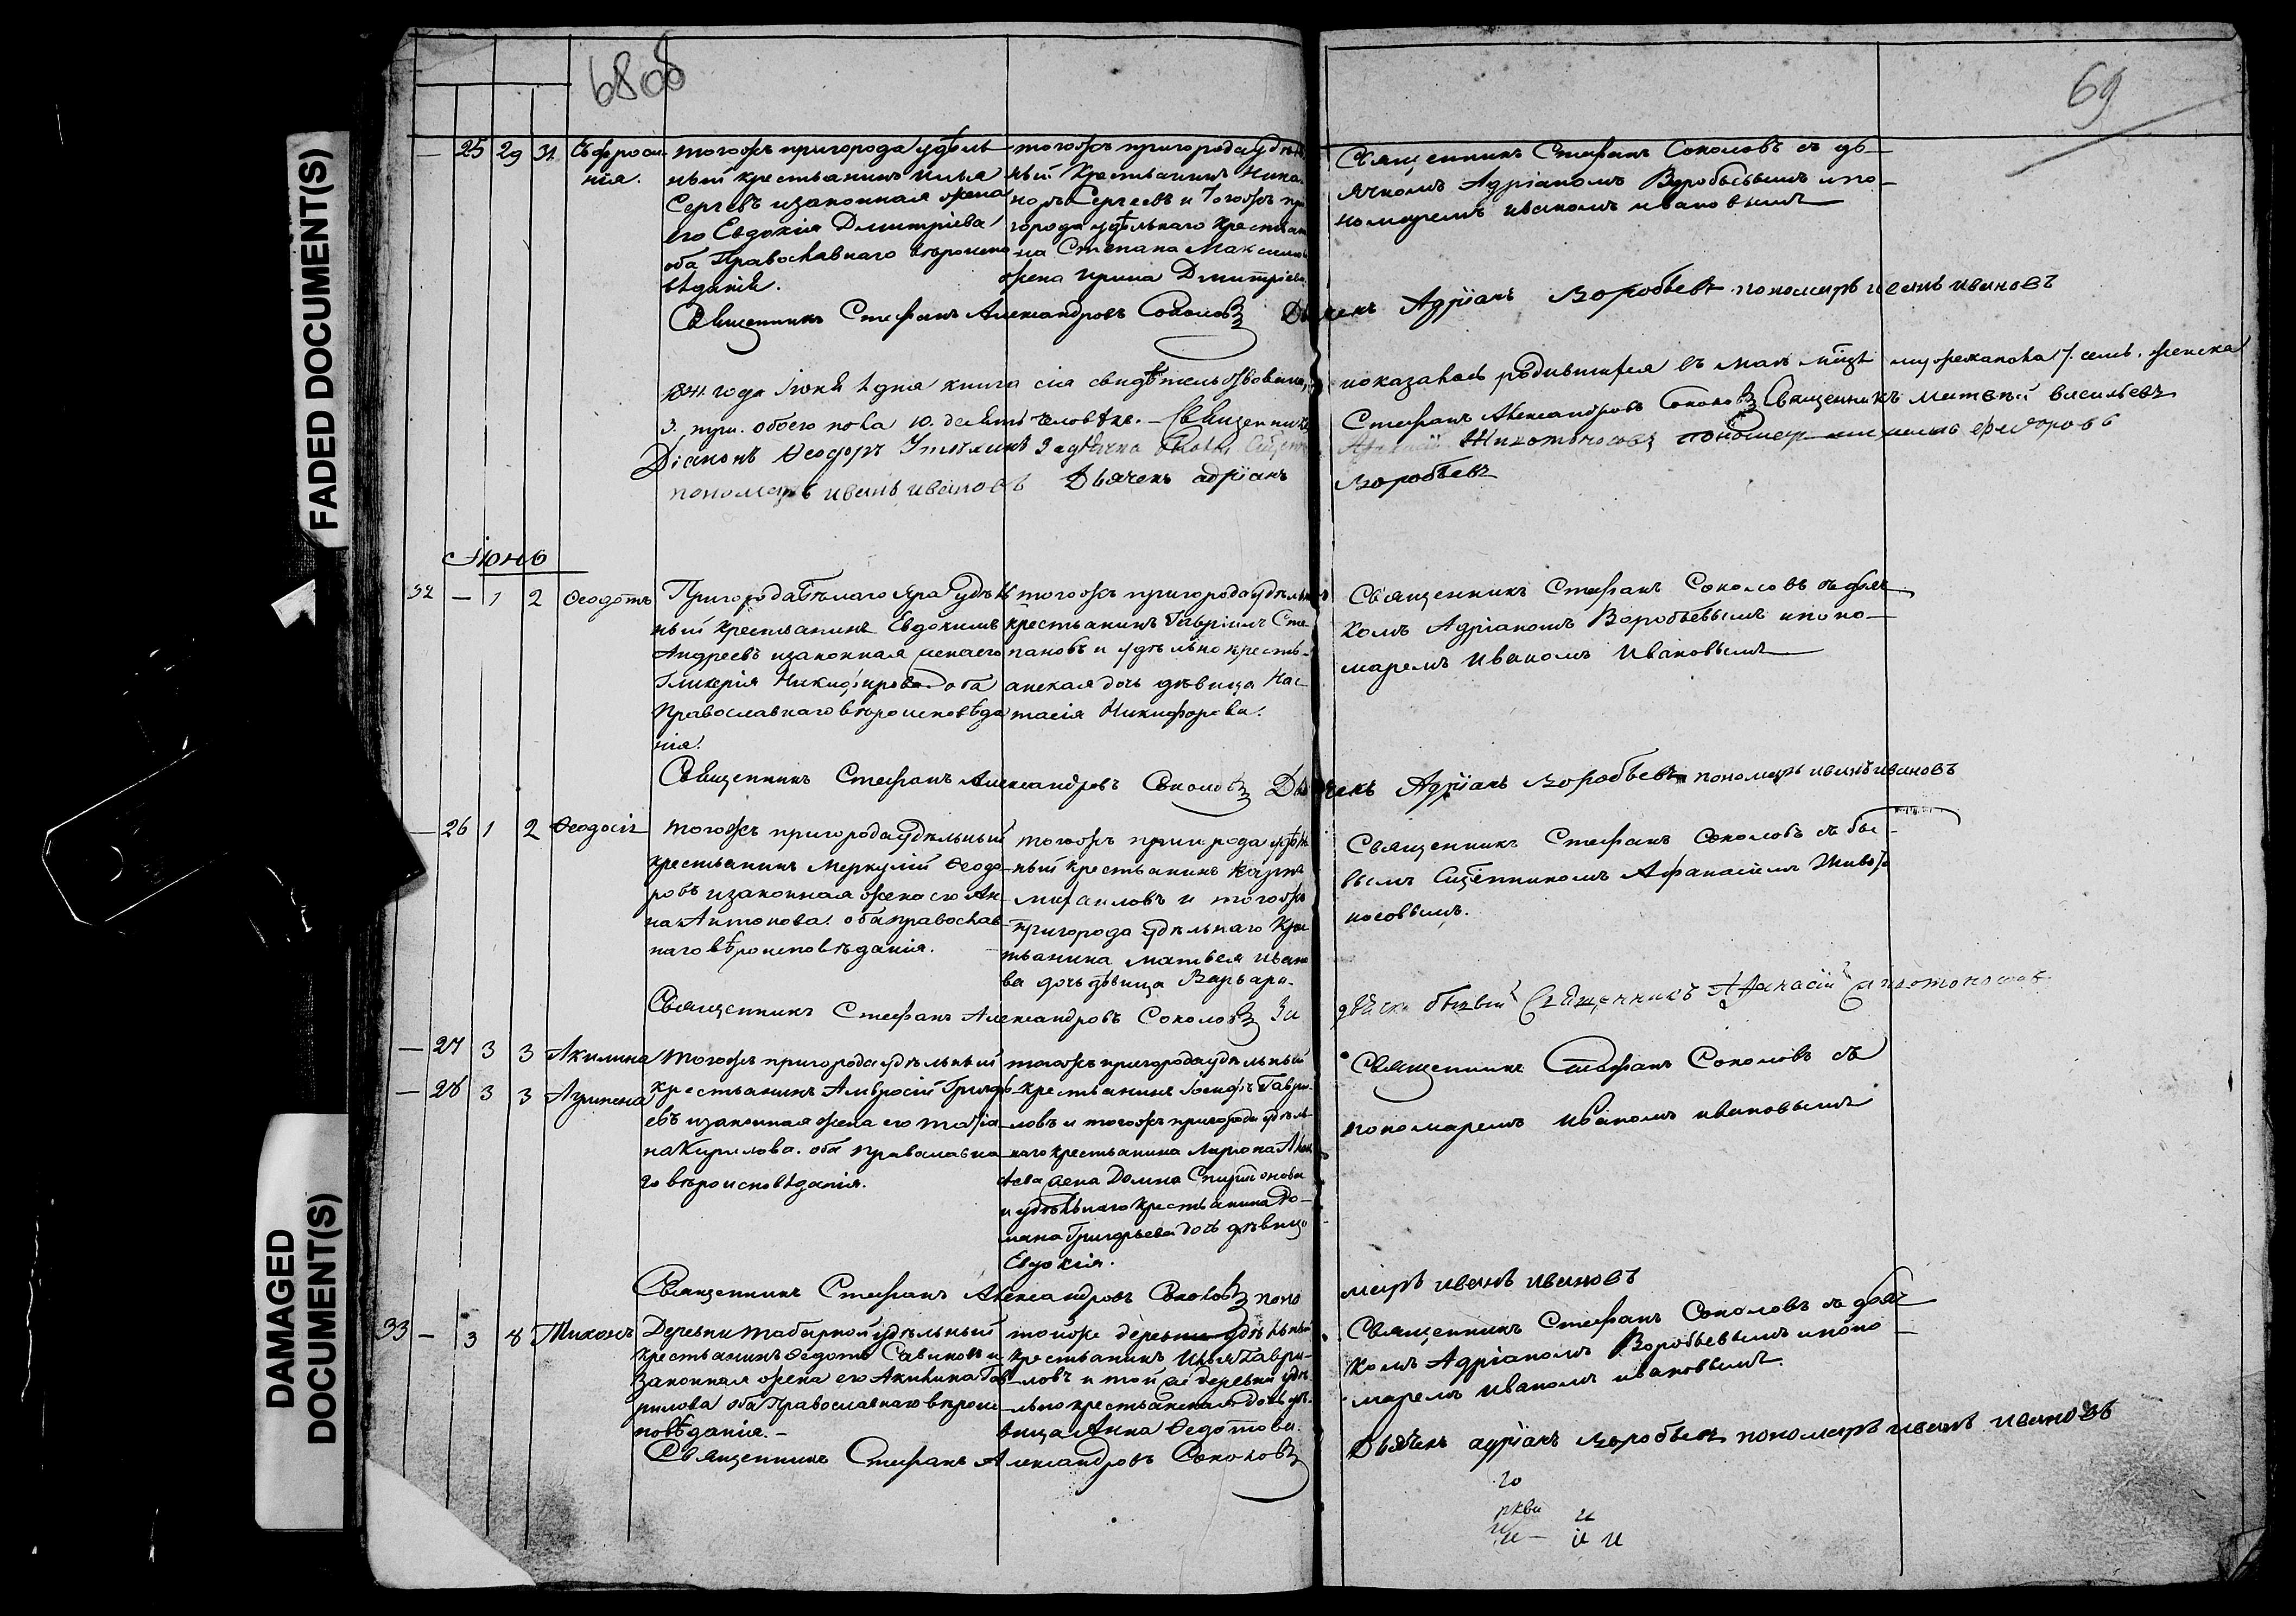 FADED DOCUMENT(S)
DAMAGED
DOCUMENT(S)
68 об
69
— 25 29 31 Ефроси-
нія.
тогожъ пригорода удѣль-
ный крестьянинъ Илья
Сергѣевъ изаконная жена
его Евдокія Димитріева
оба Православнаго вѣроиспо
вѣданія.
тогожъ пригорода удѣль
ный Крестьянинъ Ника-
норъ Сергеевъ и тогожъ при
города удѣльнаго крестьян
на Степана Максимов
жена Ирина Дмитріева
Священникъ Стефанъ Соколовъ съ дь-
ячкомъ Адріаномъ Воробьевымъ ипо-
номаремъ иваномъ ивановымъ
Священникъ Стефанъ Александровъ Соколовъ Дьячекъ Адріанъ Воробьевъ пономарь иванъ ивановъ
1841 года Іюня 1 дня книга сія свидѣтельствована, показалось родившихся въ маѣ мцѣ мужеска пола 7. семь. женска
3. три. обоего пола 10. десять человѣкъ. — Священникъ Стефанъ Александровъ Соколовъ Священникъ Матвѣй васильевъ
Діаконъ Ѳеодоръ Задьячка Животоносовъ пономарь федоровъ
пономарь иванъ ивановъ Дьячекъ адріанъ Воробьевъ
Іюнь
32 — 1 2 Ѳеодотъ
Пригорода Бѣлаго Яра Удѣль
ный крестьянинъ Евдокимъ
Андреевъ изаконная женаего
Гликерія Никифорова оба
Православнаго вѣроисповѣда
нія.
тогожъ пригорода удѣльный
крестьянинъ Гавріилъ Сте-
пановъ и удѣльнокресть-
янская дочь дѣвица Нас-
тасія Никифорова.
Священникъ Стефанъ Соколовъ съ дьяч
комъ Адріаномъ Воробьевымъ ипоно-
маремъ Иваномъ Ивановымъ
Священникъ Стефанъ Александровъ Соколовъ Дьячекъ Адріанъ Воробьевъ пономарь иванъ ивановъ
— 26 1 2 Ѳеодосія
тогожъ пригорода удѣльный
крестьянинъ Меркулій Ѳеодо-
ровъ изаконная жена его Ан-
на Антонова. оба православ-
наго вѣроисповѣданія.
тогожъ пригорода удѣль
ный крестьянинъ Карпъ
михаиловъ и тогожъ
пригорода удѣльнаго Крес
тьянина матвея ивано
ва дочь дѣвица Варвара.
Священникъ Стефанъ Соколовъ съ быв-
вымъ Сщенникомъ Афанасіемъ Живото
носовымъ.
Священникъ Стефанъ Александровъ Соколовъ За дьячка бывый Священникъ Афанасій Животоносовъ
— 27 3 3 Акилина
— 28 3 3 Агрипена
тогожъ пригорода удѣльный
крестьянинъ Амвросій Григорь
евъ изаконная жена его татіа
на Кирилова. оба православна
го вѣроисповѣданія.
тогожъ пригорода удѣльный
крестьянинъ Іосифъ Гаври-
ловъ и тогожъ пригорода удѣль-
наго крестьянина Ларіона
жена Домна Спиридонова
и удѣльнаго крестьянина Ро-
мана Григорьева дочь дѣвица
Евдокія.
Священникъ Стефанъ Соколовъ съ
пономаремъ Иваномъ ивановымъ
Священникъ Стефанъ Александровъ Соколовъ поно марь иванъ ивановъ
33 — 3 8 Тихонъ
Деревни табарной удѣльный
крестьянинъ Ѳедотъ Савиновъ и
законная жена его Акилина Гав
рилова оба Православнаго вѣроис
повѣданія. —
тойже деревни удѣльный
крестьянинъ Илья Гаври-
ловъ и той же деревни удѣ
льнокрестьянская дочь дѣ-
вица Анна Ѳедотова.
Священникъ Стефанъ Соколовъ съ дьяч
комъ Адріаномъ Воробьевымъ ипоно
маремъ иваномъ ивановымъ.
Священникъ Стефанъ Александровъ Соколовъ
Дьячекъ адріанъ Воробьевъ пономарь иванъ ивановъ
го
ркви и
и — и и